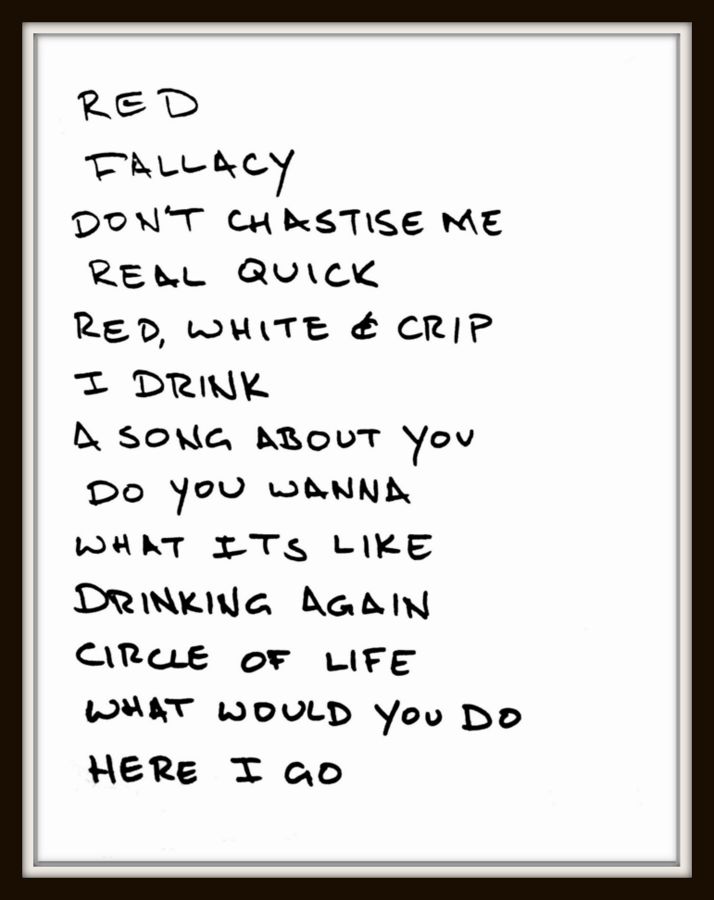 RED
FALLACY
DON'T CHASTISE ME
REAL QUICK
RED, WHITE & CRIP
I DRINK
A SONG ABOUT YOU
DO YOU WANNA
WHAT ITS LIKE
DRINKING AGAIN
CIRCLE OF LIFE
WHAT WOULD YOU DO
HERE I GO